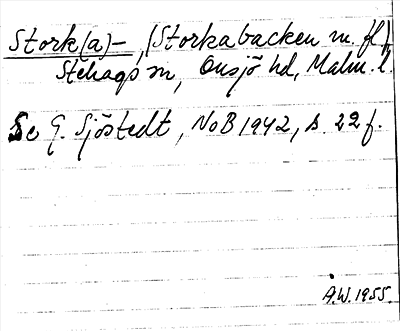 Stork(a)-, (Storkabacken m. fl.),
Stehags sn, Onsjö hd, Malm. l.
Se G. Sjöstedt, NoB 1942, s. 22 f.
A.W. 1955.